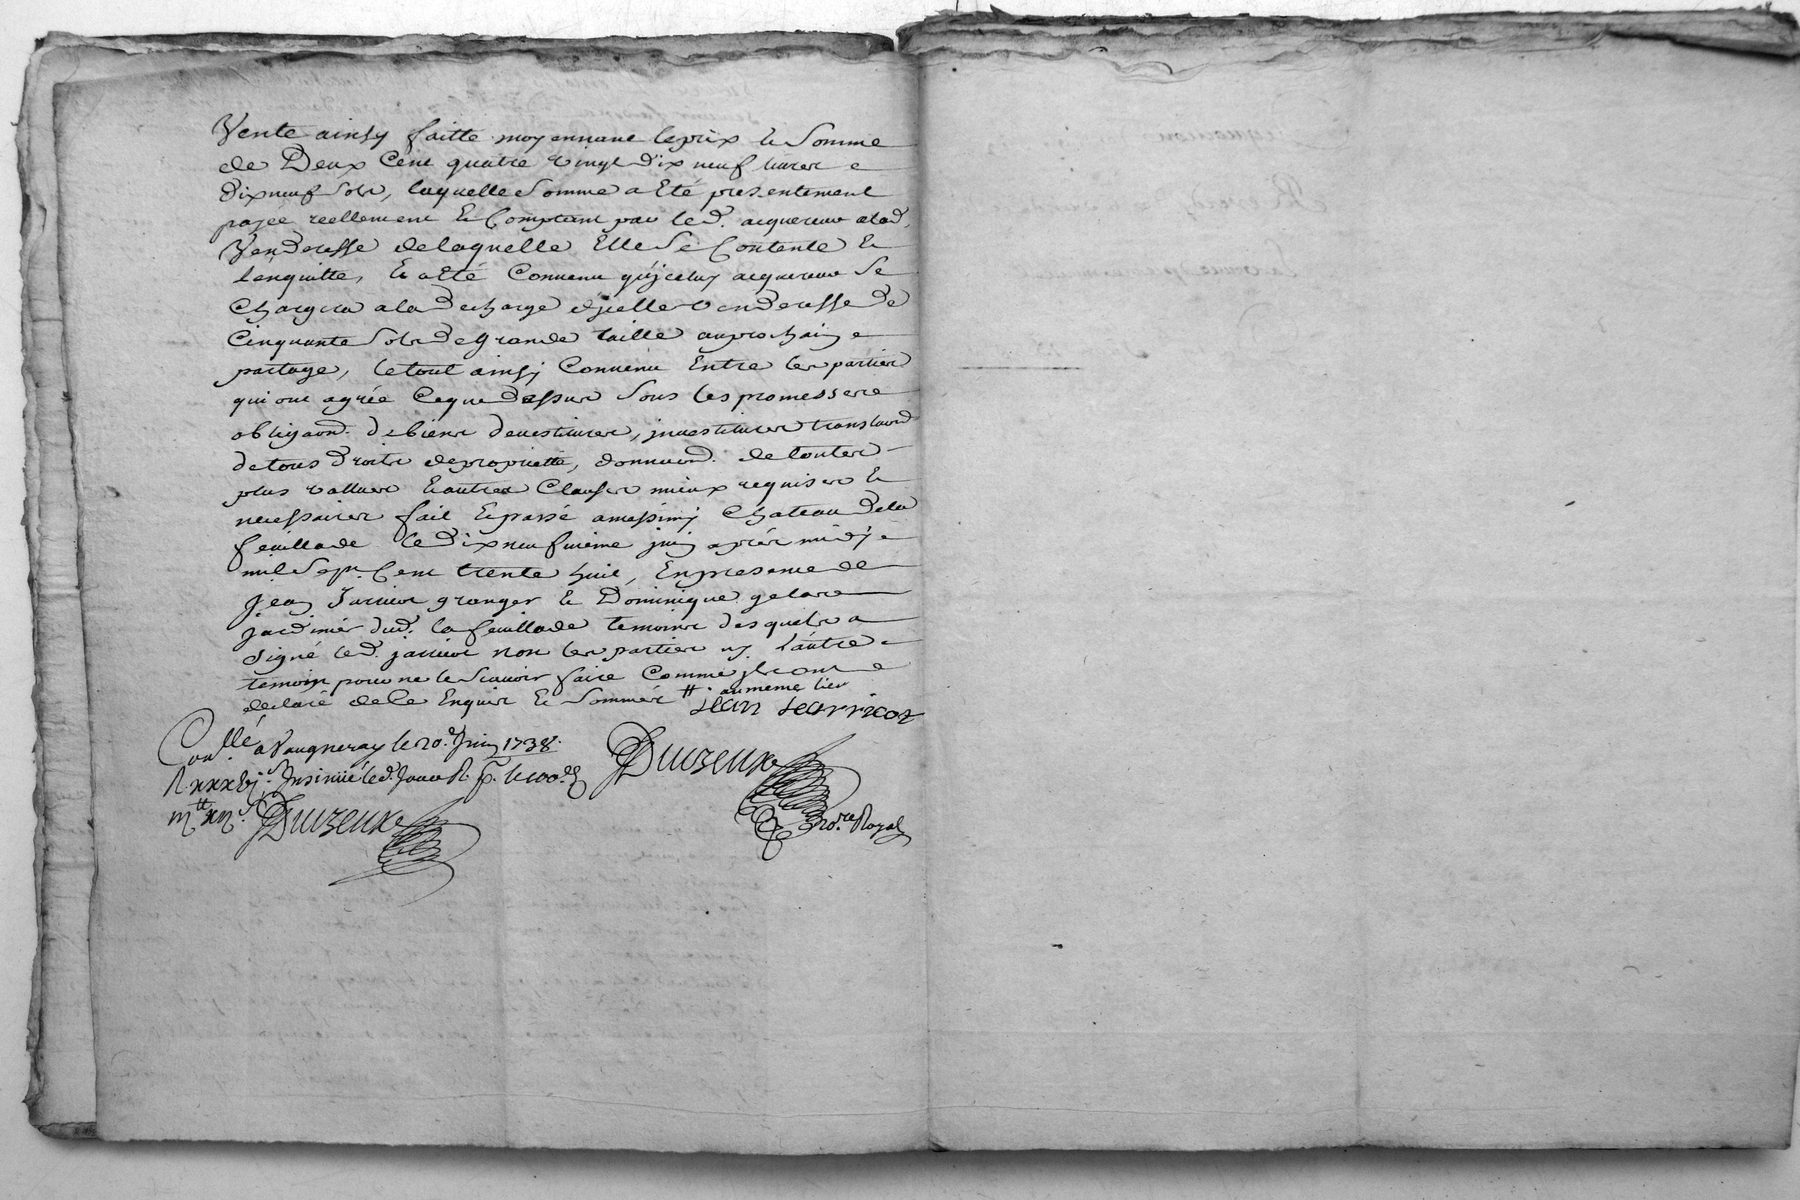 Vente ainsy faitte moyennant le prix et somme
de Deux Cent quatre vingt dix neuf livres e
dixneuf sols, laquelle somme a Eté presentement
payée reellement et Comptant par led. acquereur alad.
Venderesse de laquelle Elle se Contente et
l'enquitte, Et a Eté Convenu qu'jceluy acquereur se
Chargera a la decharge djcelle venderesse de
Cinquante sols de grande taille au prochain
partage, le tout ainsj Convenu Entre les parties
qui ont agrée Ce que dessus sous les promesses
obligaons. de biens devestitures, jnvestitures translaons
de tous droits de proprietté, donnaons. de toutes
plus vallues Et autres Clauses mieux requises et
necessaires fait Et passé a massimj Chateau de la
feuillade le dixneufvieme juin après midj
mil sept Cent trente huit, En presence de
Jean Jarricot granger et Dominique gelas
jardinier dud. la feuillade temoins desquels a
signé led. jarricot non les parties nj l'autre
temoin pour ne le scavoir faire Comme jls ont
declaré de ce Enquis et sommés # au meme lieu
Jean Jarricot
Conllé a Vaugneray le 20.e Juin 1738.
R. xxxbj.s Insinué le d. Jour R. p. le 100.e d
iij tt xij s. Duvzeux
Duvzeux
No.re Royal